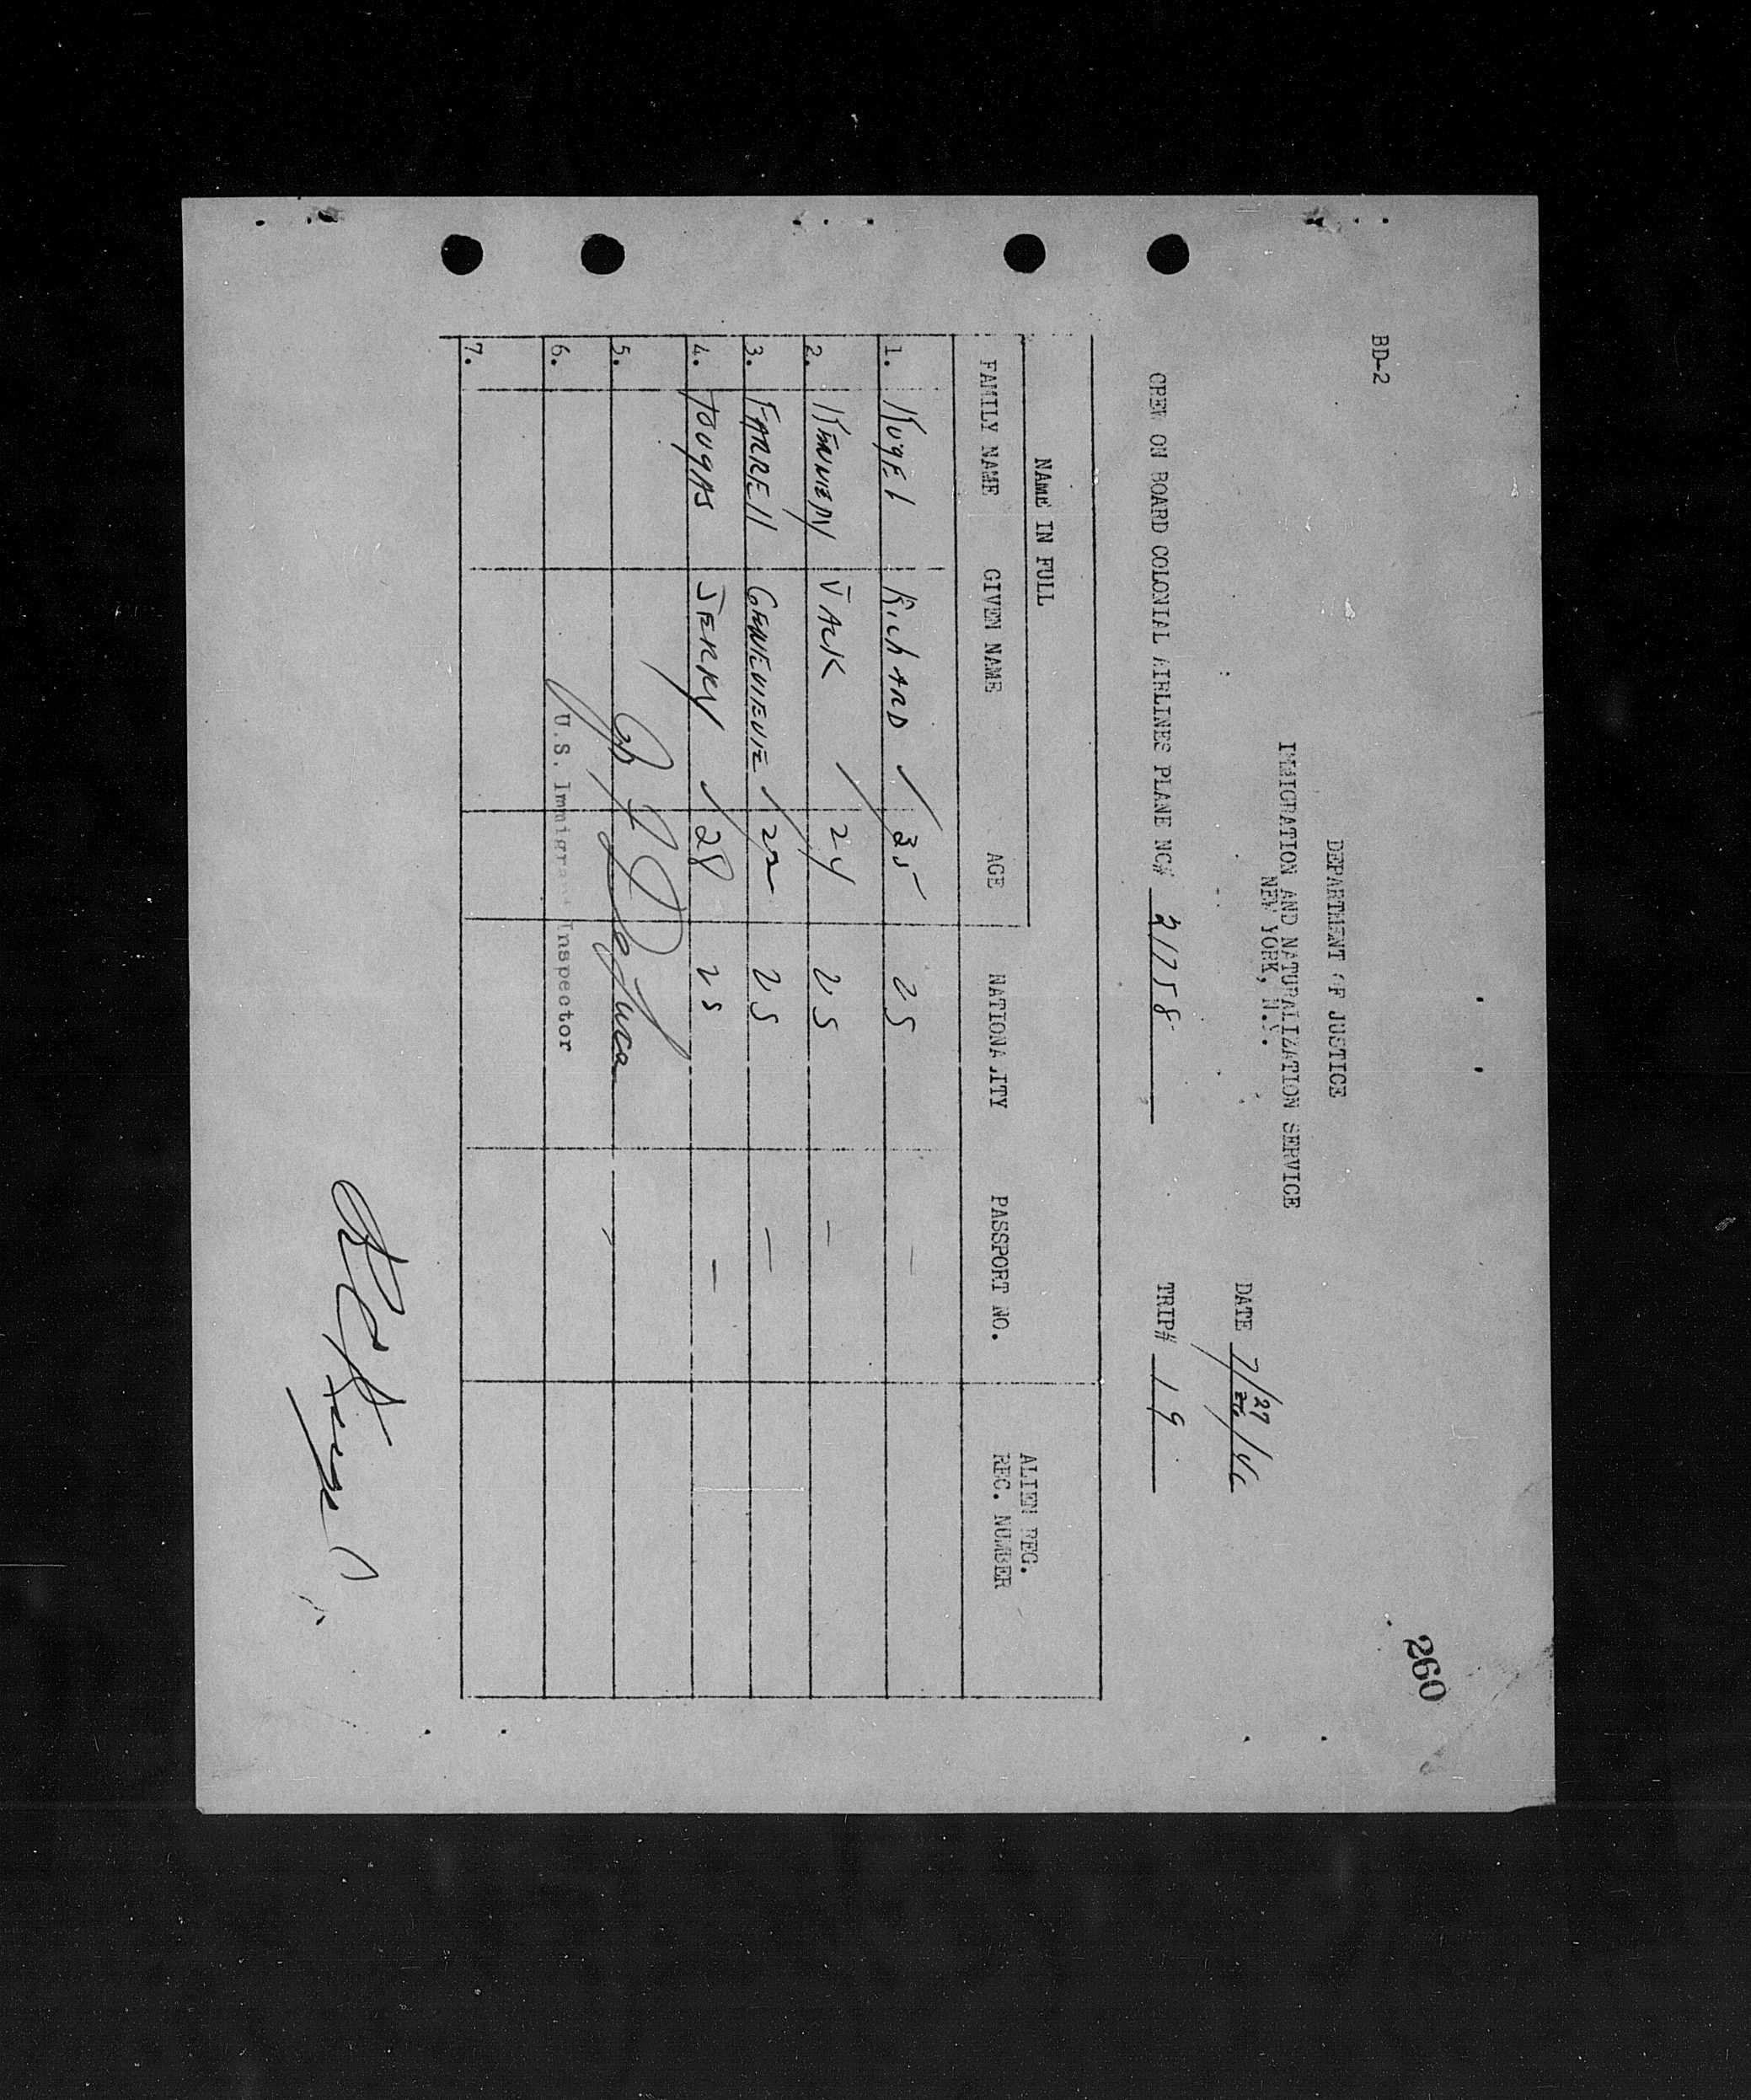 260
BD-2
DEPARTMENT OF JUSTICE
IMMIGRATION AND NATURALIZATION SERVICE
NEW YORK, N.Y.
DATE 7/27/46
CREW ON BOARD COLONIAL AIRLINES PLANE NC# 21758 TRIP# 19
NAME IN FULL
FAMILY NAME GIVEN NAME AGE NATIONALITY PASSPORT NO. ALIEN REG. REC. NUMBER
1. KugEl RichARD ✓ 35 US —
2. KENNEDY JACK / 24 US —
3. FARREll GENEVIEVE ✓ 22 US —
4. TOUgAS JERRY ✓ 28 US —
5.
6.
7.
U.S. Immigrant Inspector